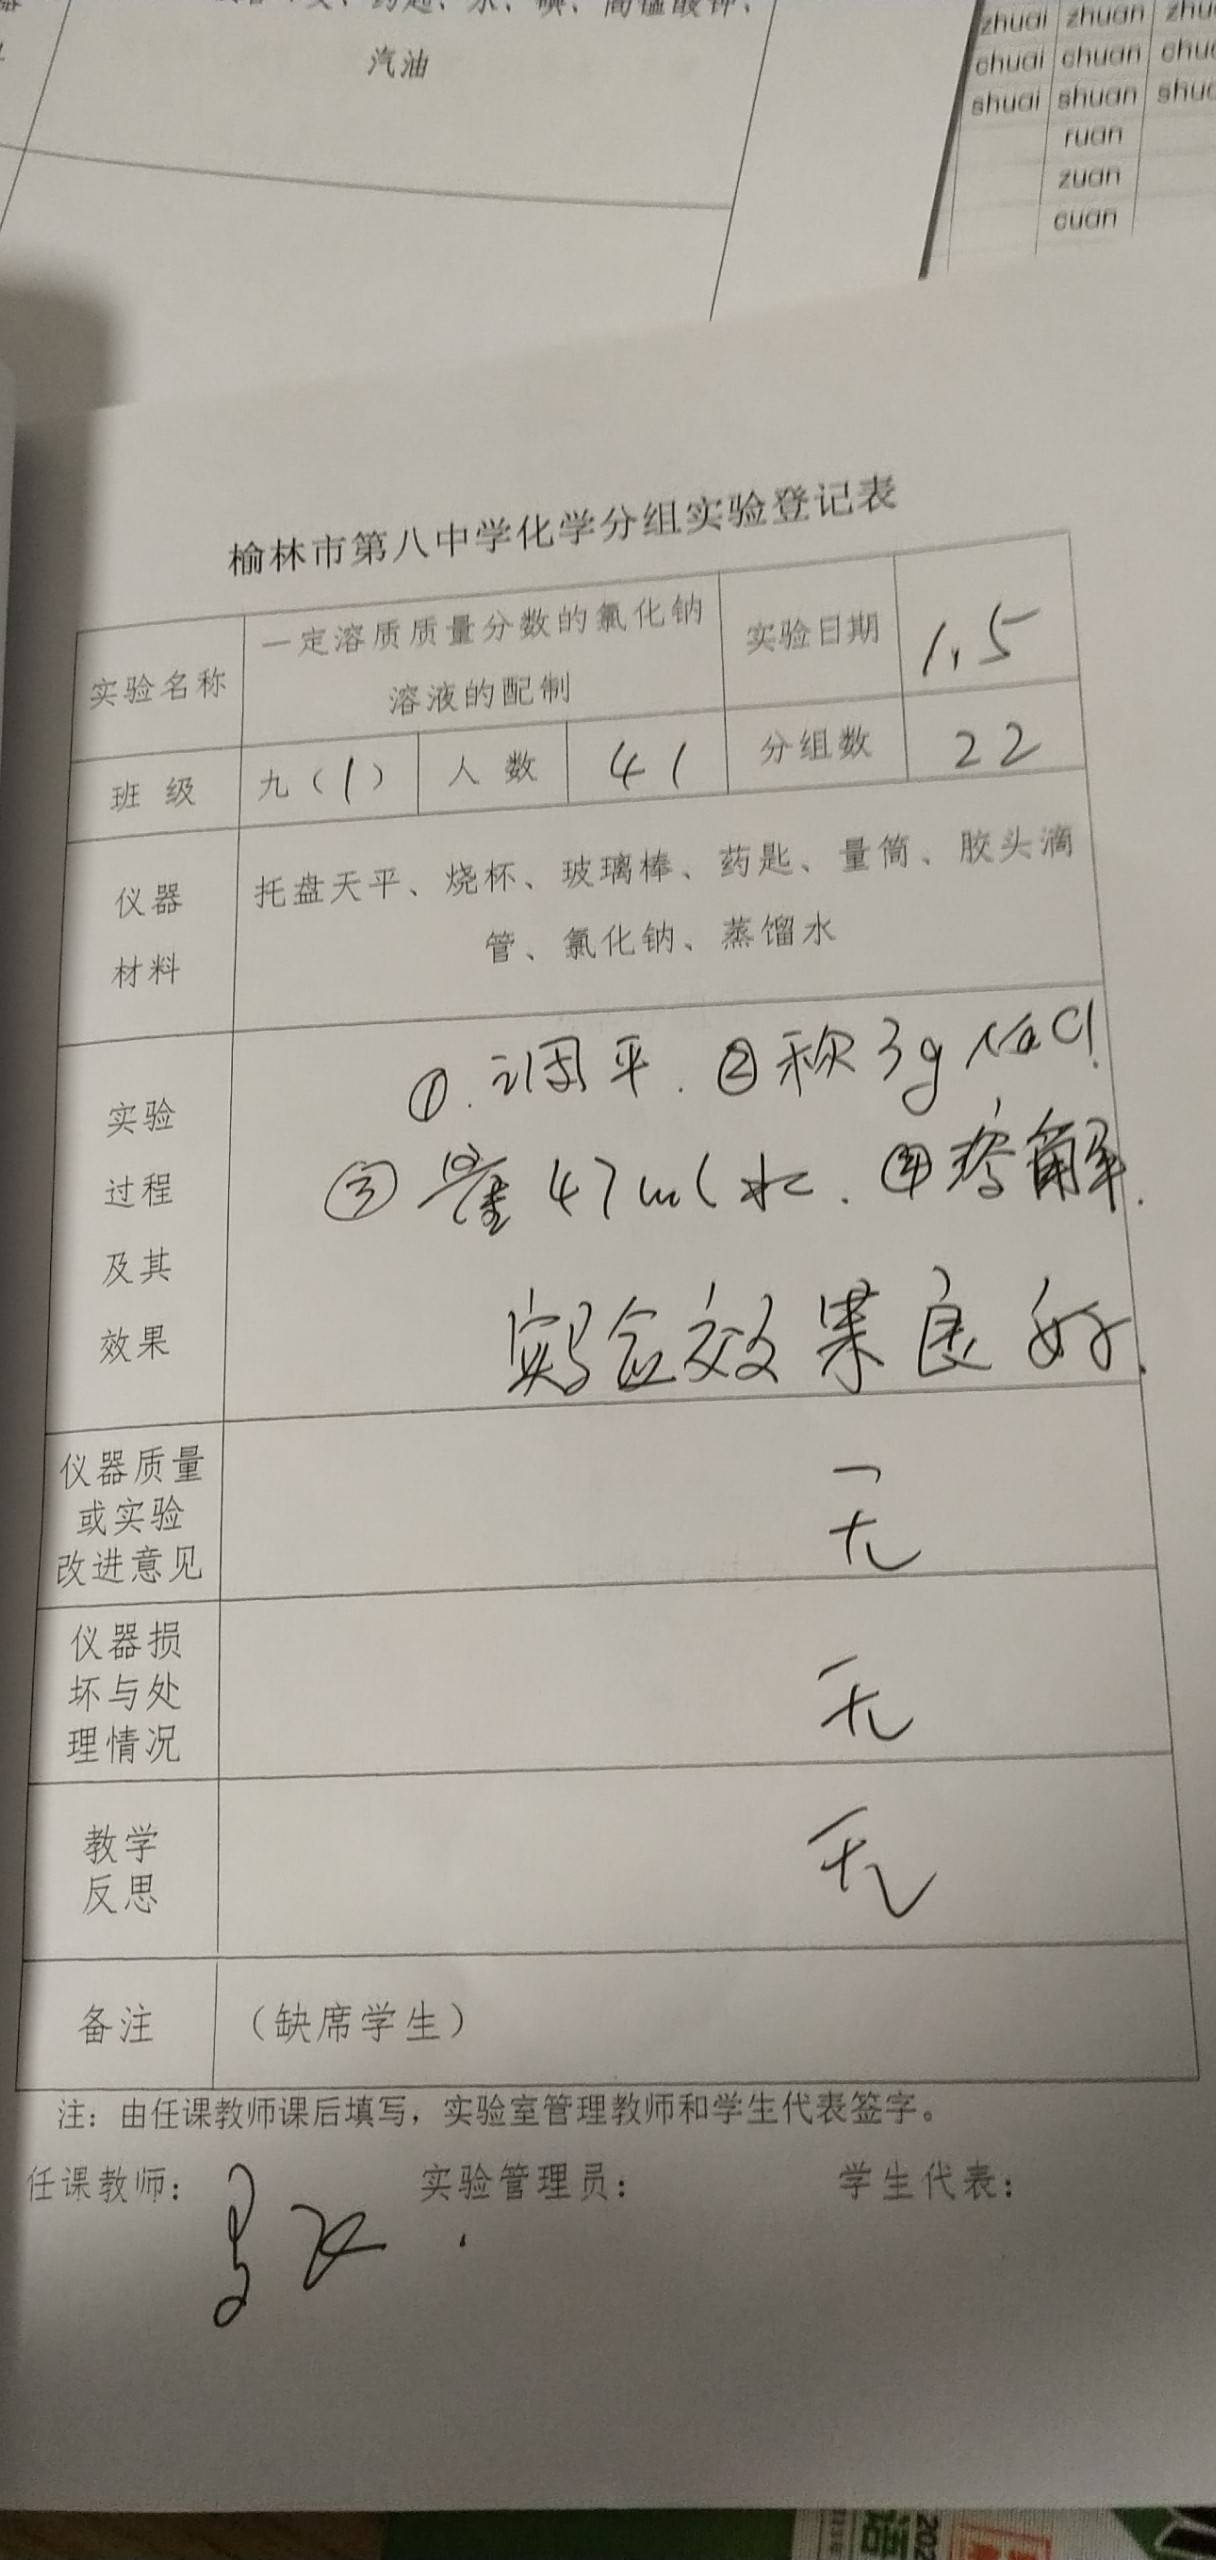 汽油
zhuai zhuan
chuai chuan
shuai shuan
ruan
zuan
cuan
榆林市第八中学化学分组实验登记表
实验名称
一定溶质质量分数的氯化钠
溶液的配制
实验日期
1.5
班 级
九(1)
人 数
41
分组数
22
仪器
材料
托盘天平、烧杯、玻璃棒、药匙、量筒、胶头滴
管、氯化钠、蒸馏水
实验
过程
及其
效果
①.调平. ②称3g NaCl.
③量47ml水. ④溶解.
实验效果良好.
仪器质量
或实验
改进意见
无
仪器损
坏与处
理情况
无
教学
反思
无
备注
(缺席学生)
注：由任课教师课后填写，实验室管理教师和学生代表签字。
任课教师：
实验管理员：
学生代表：